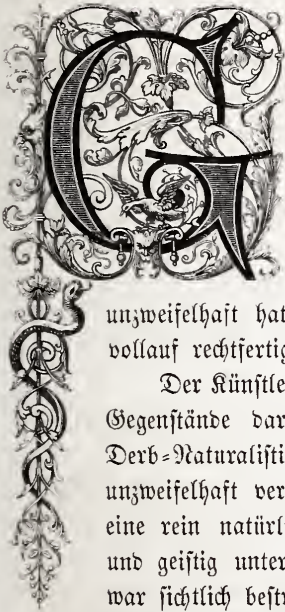 G
unzweifelhaft hat
vollauf rechtfertig
Der Künstle
Gegenstände dar
Derb-Naturalisti
unzweifelhaft ver
eine rein natürl
und geistig unter
war sichtlich bestr